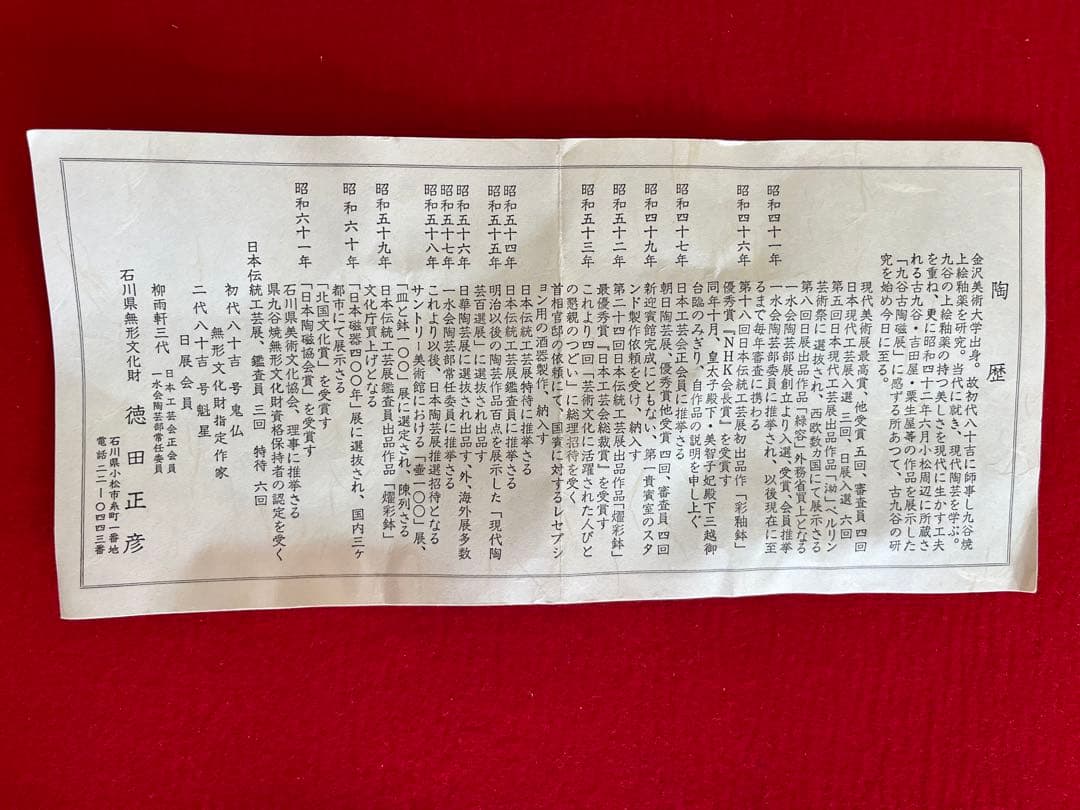 陶歴
金沢美術大学出身。故初代八十吉に師事し九谷焼
上絵釉薬を研究。当代に就き、現代陶芸を学ぶ。
九谷の上絵釉薬の持つ美しさを現代に生かす工夫
を重ね、更に昭和四十二年六月小松周辺に所蔵さ
れる古九谷・吉田屋・粟生屋等の作品を展示した
「九谷古陶磁展」に感ずる所あつて、古九谷の研
究を始め今日に至る。
現代美術展最高賞、他受賞 五回、審査員 四回
日本現代工芸展入選 三回、日展入選 六回
昭和四十一年 第五回日本現代工芸展出品作品「泑」ベルリン
芸術祭に選抜され、西欧数カ国にて展示さる
昭和四十六年 第八回日展出品作品「緑容」外務省買上となる
一水会陶芸部展創立より入選、受賞、会員推挙
るまで毎年審査に携わる
一水会陶芸部委員に推挙され、以後現在に至
第十八回日本伝統工芸展初出品作「彩釉鉢」
優秀賞『NHK会長賞』を受賞す
同年十月、皇太子殿下・美智子妃殿下三越御
台臨のみぎり、自作品の説明を申し上ぐ
昭和四十七年 日本工芸会正会員に推挙さる
朝日陶芸展、優秀賞他受賞 四回、審査員 四回
昭和四十九年 新迎賓館完成にともない、第一貴賓室のスタ
ンド製作依頼を受け、納入す
昭和五十二年 第二十四回日本伝統工芸展出品作品「燿彩鉢」
最優秀賞『日本工芸会総裁賞』を受賞す
昭和五十三年 これより四回「芸術文化に活躍された人びと
の懇親のつどい」に総理招待を受く
首相官邸の依頼にて、国賓に対するレセプシ
ョン用の酒器製作、納入す
昭和五十四年 日本伝統工芸展特待に推挙さる
日本伝統工芸展鑑査員に推挙さる
昭和五十五年 明治以後の陶芸作品百点を展示した「現代陶
芸百選展」に選抜され出品す
昭和五十六年 日華陶芸展に選抜され出品す、外、海外展多数
昭和五十七年 一水会陶芸部常任委員に推挙さる
昭和五十八年 これより以後、日本陶芸展推選招待となる
サントリー美術館における「壷一〇〇」展、
「皿と鉢一〇〇」展に選定され、陳列さる
昭和五十九年 日本伝統工芸展鑑査員出品作品「燿彩鉢」
文化庁買上げとなる
昭和六十年 「日本磁器四〇〇年」展に選抜され、国内三ヶ
都市にて展示さる
「北国文化賞」を受賞す
昭和六十一年 「日本陶磁協会賞」を受賞す
石川県美術文化協会、理事に推挙さる
県九谷焼無形文化財資格保持者の認定を受く
日本伝統工芸展、鑑査員 三回 特待 六回
初代八十吉 号鬼仏
無形文化財指定作家
二代八十吉 号魁星
日展会員
柳雨軒三代 日本工芸会正会員
一水会陶芸部常任委員
石川県無形文化財 徳田正彦
石川県小松市糸町一番地
電話二二―〇四四三番